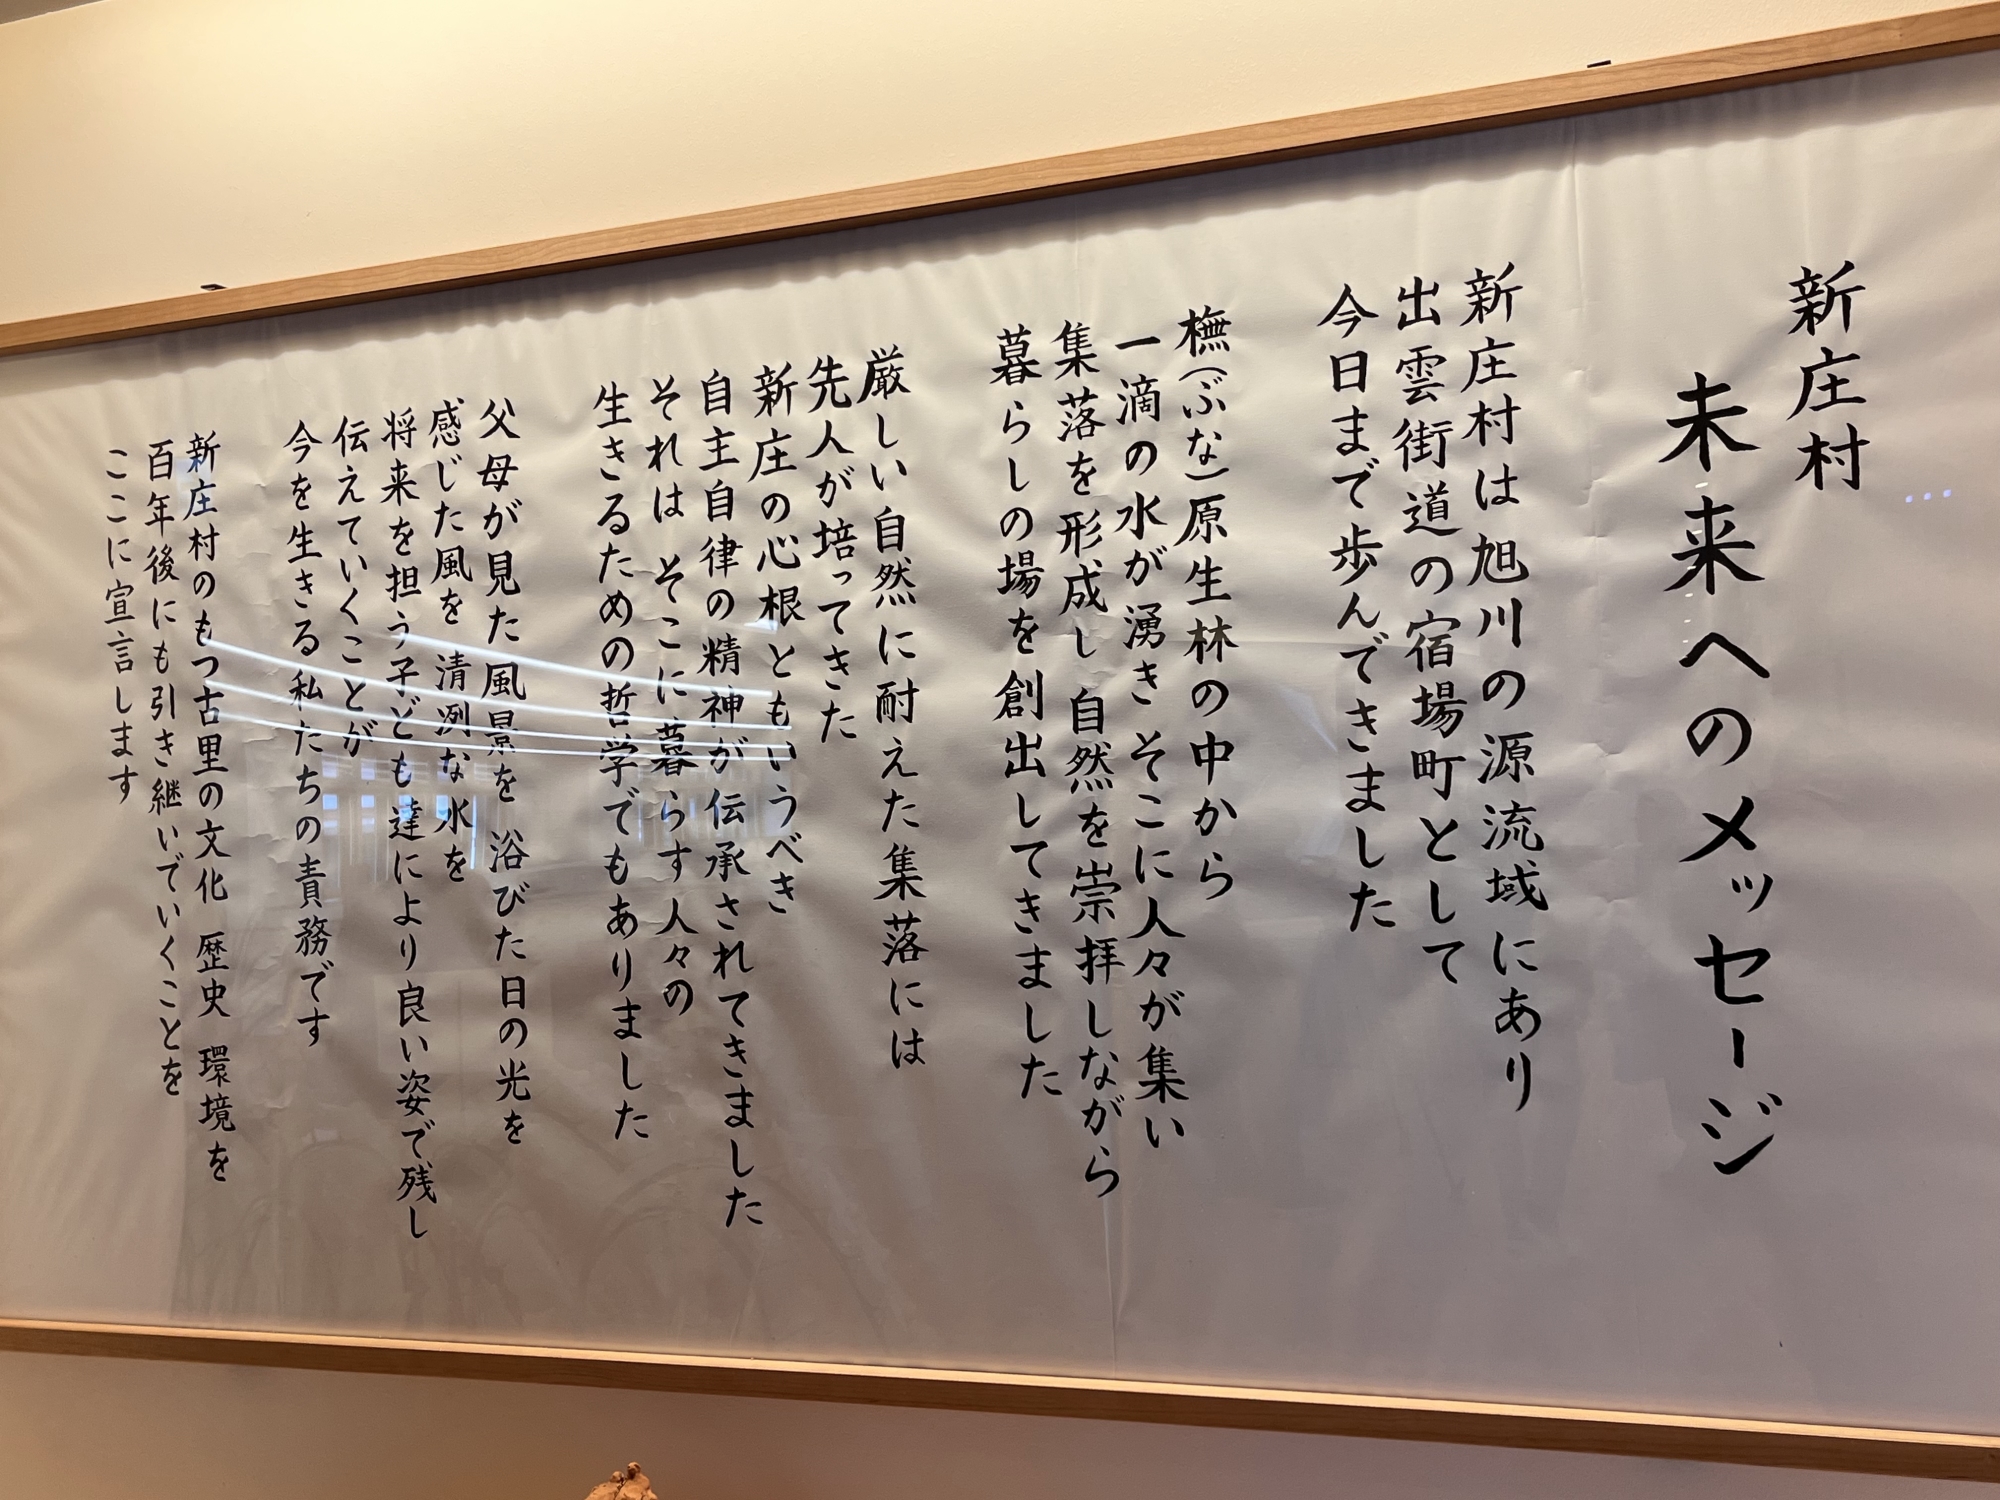 新庄村
未来へのメッセージ
新庄村は旭川の源流域にあり
出雲街道の宿場町として
今日まで歩んできました
橅(ぶな)原生林の中から
一滴の水が湧き そこに人々が集い
集落を形成し 自然を崇拝しながら
暮らしの場を創出してきました
厳しい自然に耐えた集落には
先人が培ってきた
新庄の心根ともいうべき
自主自律の精神が伝承されてきました
それは そこに暮らす人々の
生きるための哲学でもありました
父母が見た風景を 浴びた日の光を
感じた風を 清冽な水を
将来を担う子ども達により良い姿で残し
伝えていくことが
今を生きる私たちの責務です
新庄村のもつ古里の文化 歴史 環境を
百年後にも引き継いでいくことを
ここに宣言します